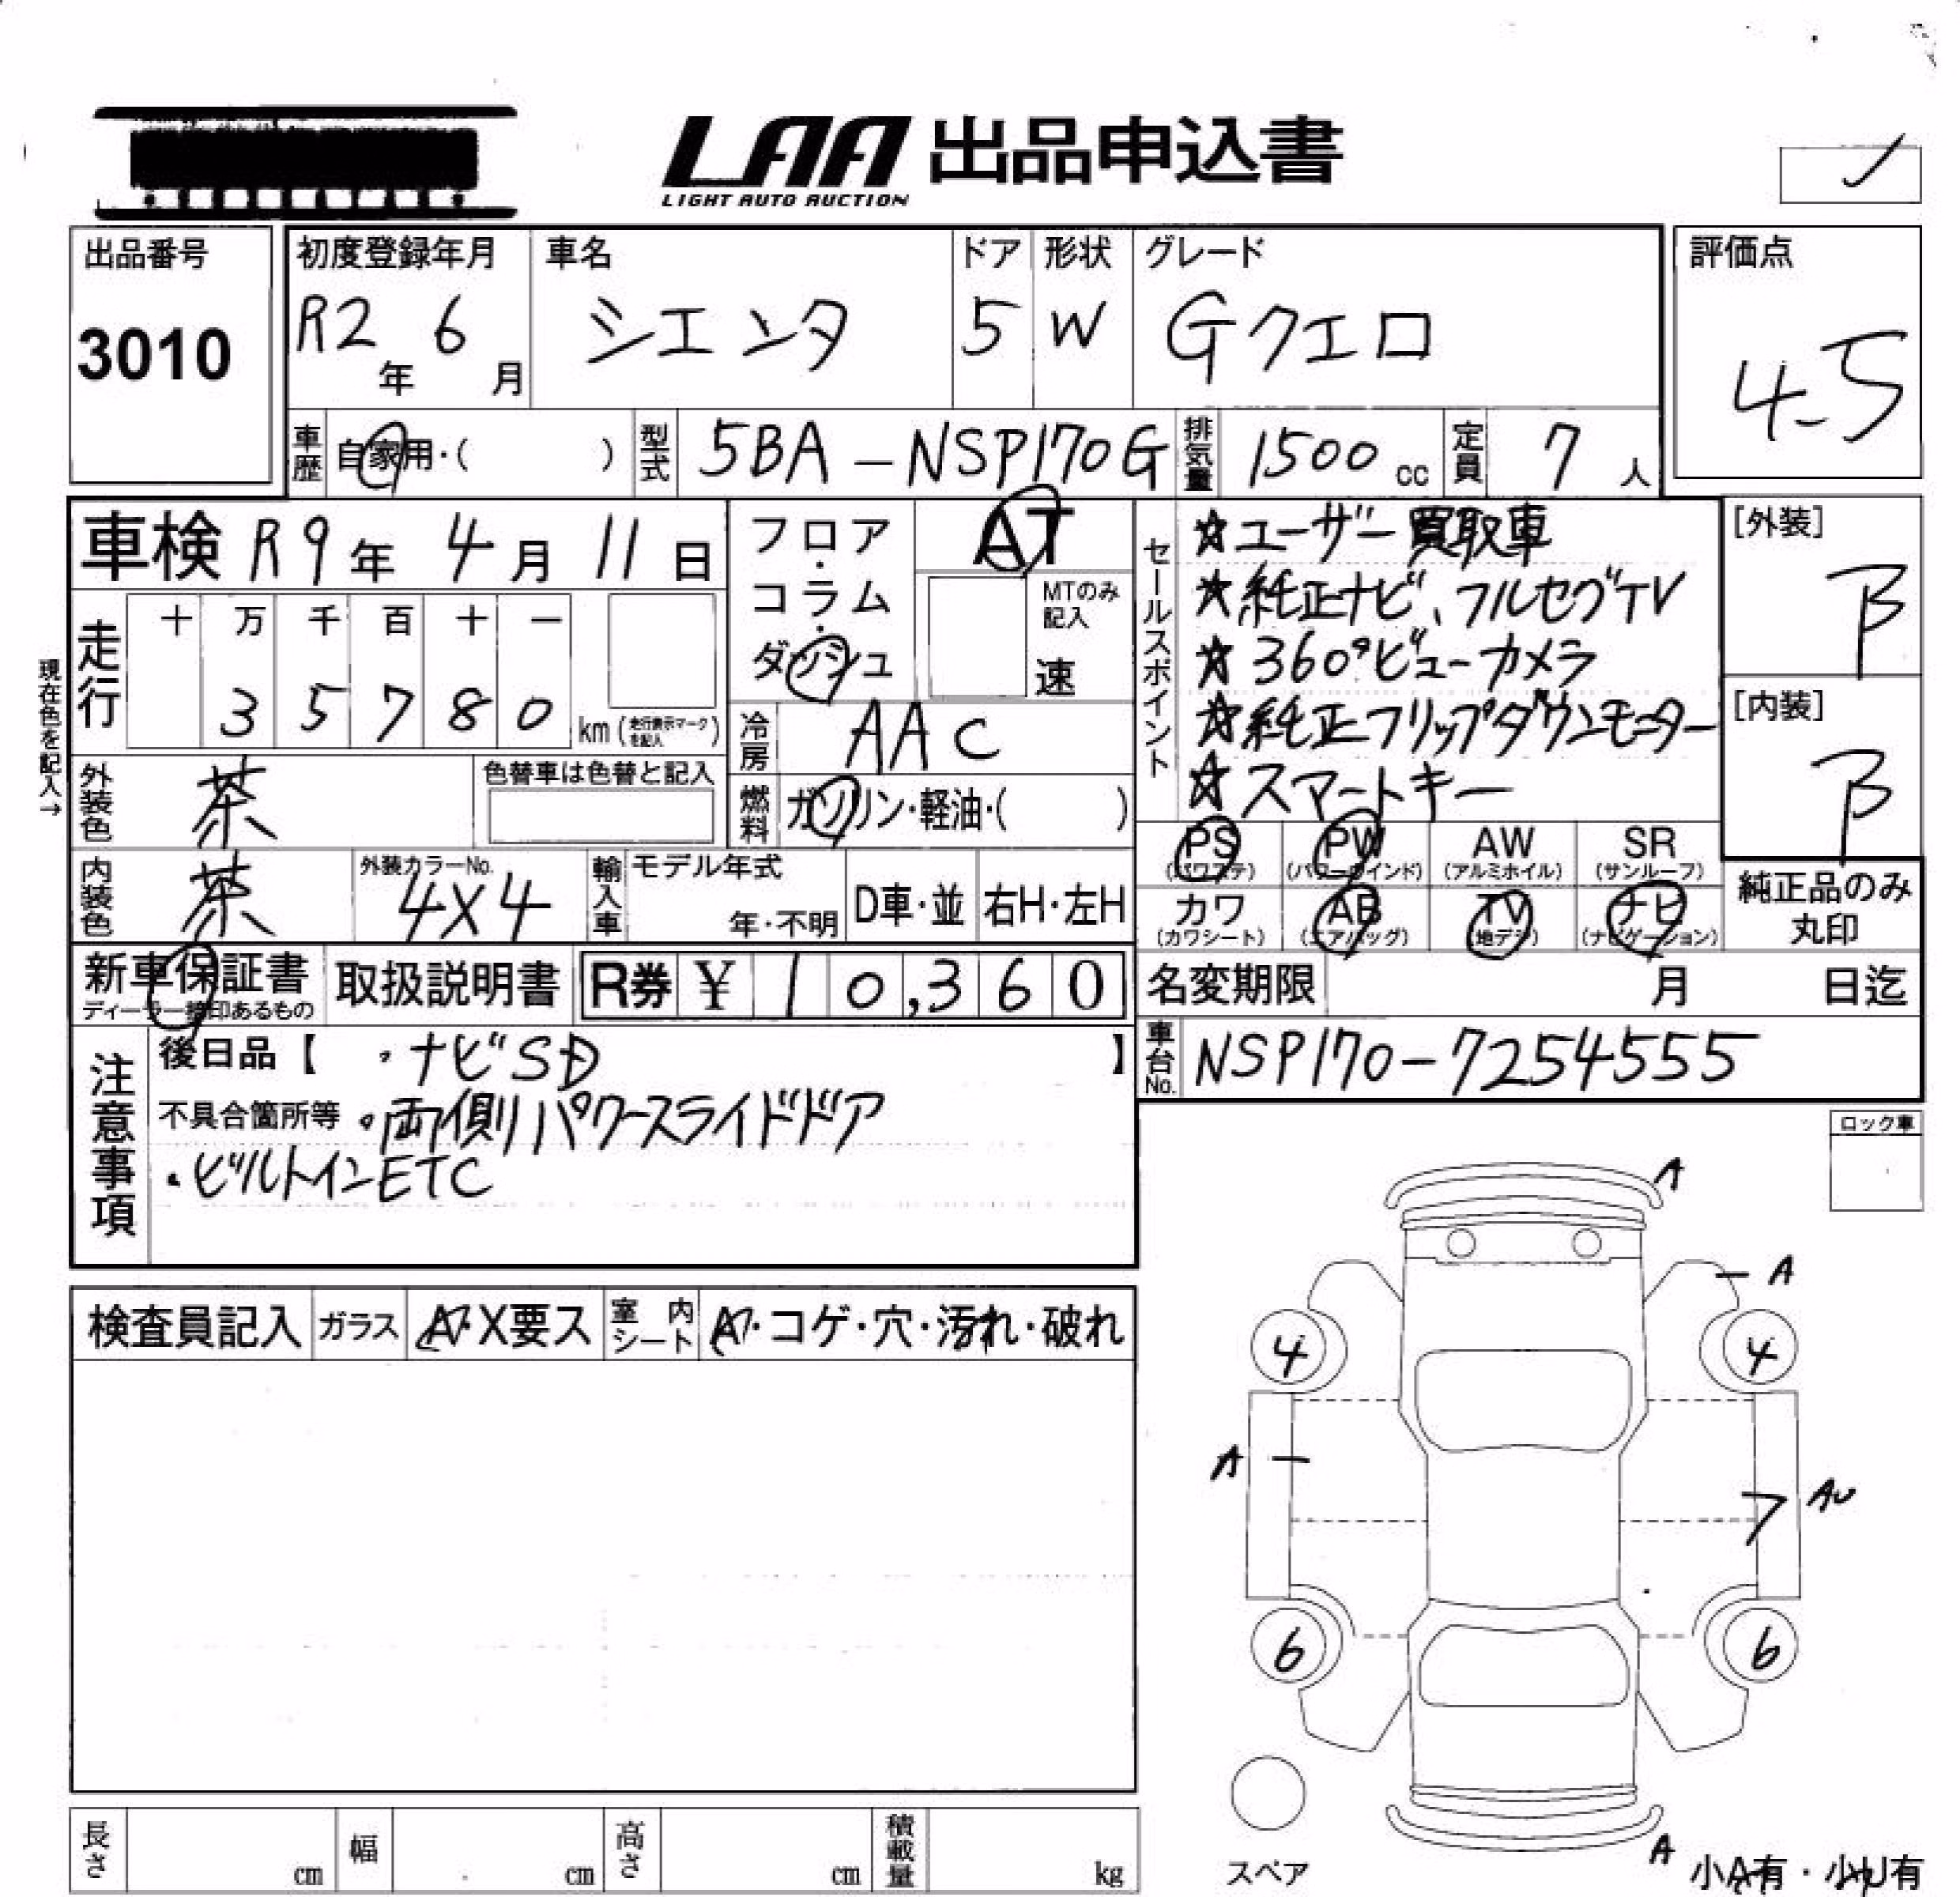 LAA 出品申込書
LIGHT AUTO AUCTION
出品番号
3010
初度登録年月
R2年 6月
車名
シエンタ
ドア
5
形状
W
グレード
Gクエロ
評価点
4.5
車歴
自家用・( )
型式
5BA-NSP170G
排気量
1500cc
定員
7人
車検 R9年 4月 11日
フロア・コラム・ダッシュ
AT
MTのみ記入
速
現在色を記入→
走行
十 万 千 百 十 一
3 5 7 8 0 km (走行表示マークを記入)
冷房
AAC
外装色
茶
色替車は色替と記入
燃料
ガソリン・軽油・( )
内装色
茶
外装カラーNo.
4X4
輸入車
モデル年式
年・不明
D車・並
右H・左H
セールスポイント
☆ユーザー買取車
☆純正ナビ、フルセグTV
☆360°ビューカメラ
☆純正フリップダウンモニター
☆スマートキー
[外装]
B
[内装]
B
PS (パワステ)
PW (パワーウインド)
AW (アルミホイル)
SR (サンルーフ)
カワ (カワシート)
AB (エアバッグ)
TV (地デジ)
ナビ (ナビゲーション)
純正品のみ丸印
新車保証書
ディーラー捺印あるもの
取扱説明書
R券 ¥ 10,360
名変期限
月 日迄
車台No.
NSP170-7254555
注意事項
後日品【 ・ナビSD 】
不具合箇所等 ・両側パワースライドドア
・ビルトインETC
ロック車
検査員記入
ガラス
・X要ス
室内シート
・コゲ・穴・汚れ・破れ
A
A
4
4
A
AU
6
6
A
スペア
小A有・小U有
長さ cm
幅 cm
高さ cm
積載量 kg